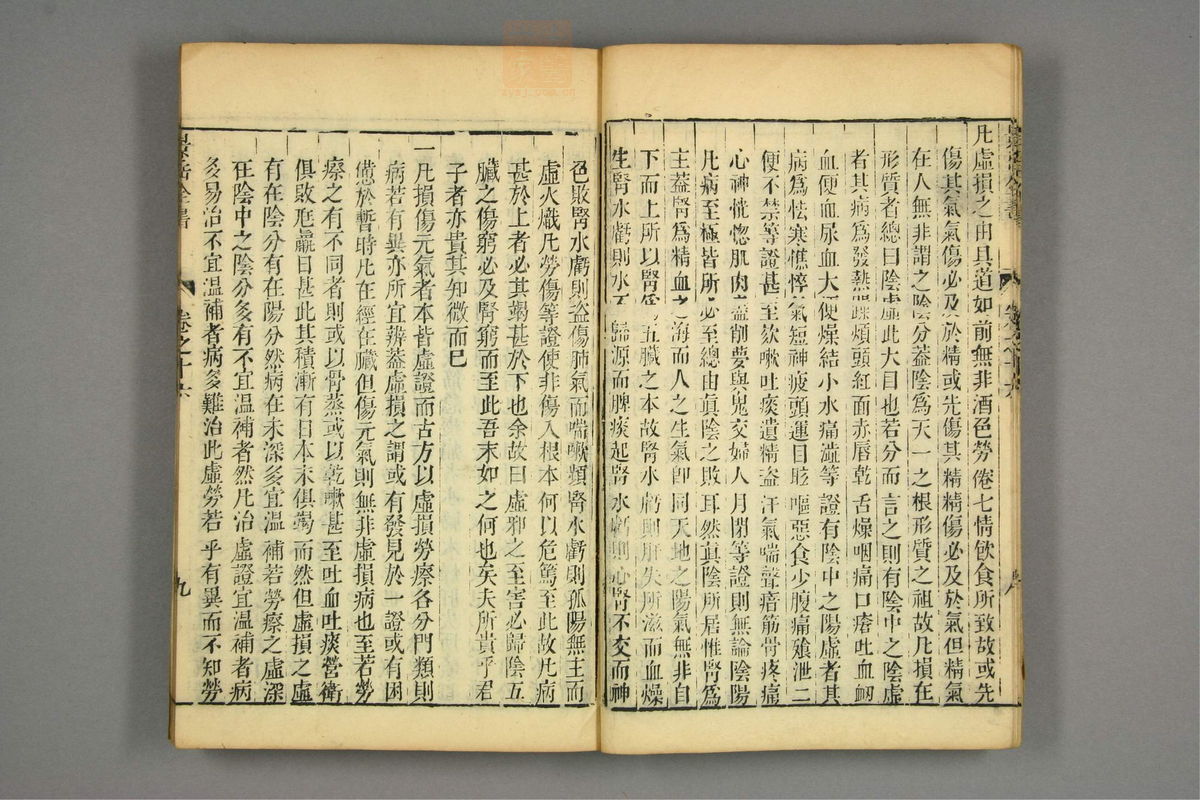 凡虛損之由具道如前無非酒色勞倦七情飲食所致故或先
傷其氣氣傷必及於精或先傷其精精傷必及於氣但精氣
在人無非謂之陰分蓋陰爲天一之根形質之祖故凡損在
形質者總曰陰虛此大目也若分而言之則有陰中之陰虛
者其病爲發熱躁煩頭紅面赤唇乾舌燥咽痛口瘡吐血衂
血便血尿血大便燥結小水痛澁等證有陰中之陽虛者其
病爲怯寒憔悴氣短神疲頭運目眩嘔惡食少腹痛飧泄二
便不禁等證甚至欬嗽吐痰遺精盜汗氣喘聲瘖筋骨疼痛
心神恍惚肌肉盡削夢與鬼交婦人月閉等證則無論陰陽
凡病至極皆所必至總由眞陰之敗耳然眞陰所居惟腎爲
主蓋腎爲精血之海而人之生氣卽同天地之陽氣無非自
下而上所以腎爲五臟之本故腎水虧則肝失所滋而血燥
生腎水虧則水不歸源而脾痰起腎水虧則心腎不交而神
色敗腎水虧則盜傷肺氣而喘嗽頻腎水虧則孤陽無主而
虛火熾凡勞傷等證使非傷入根本何以危篤至此故凡病
甚於上者必其竭甚於下也余故曰虛邪之至害必歸陰五
臟之傷窮必及腎窮而至此吾末如之何也矣夫所貴乎君
子者亦貴其知微而已
一凡損傷元氣者本皆虛證而古方以虛損勞瘵各分門類則
病若有異亦所宜辨蓋虛損之謂或有發見於一證或有困
憊於暫時凡在經在臟但傷元氣則無非虛損病也至若勞
瘵之有不同者則或以骨蒸或以乾嗽甚至吐血吐痰營衛
俱敗尫羸日甚此其積漸有日本末俱竭而然但虛損之虛
有在陰分有在陽分然病在未深多宜溫補若勞瘵之虛深
在陰中之陰分多有不宜溫補者然凡治虛證宜溫補者病
多易治不宜溫補者病多難治此虛勞若乎有異而不知勞
景岳全書
卷之十六
九